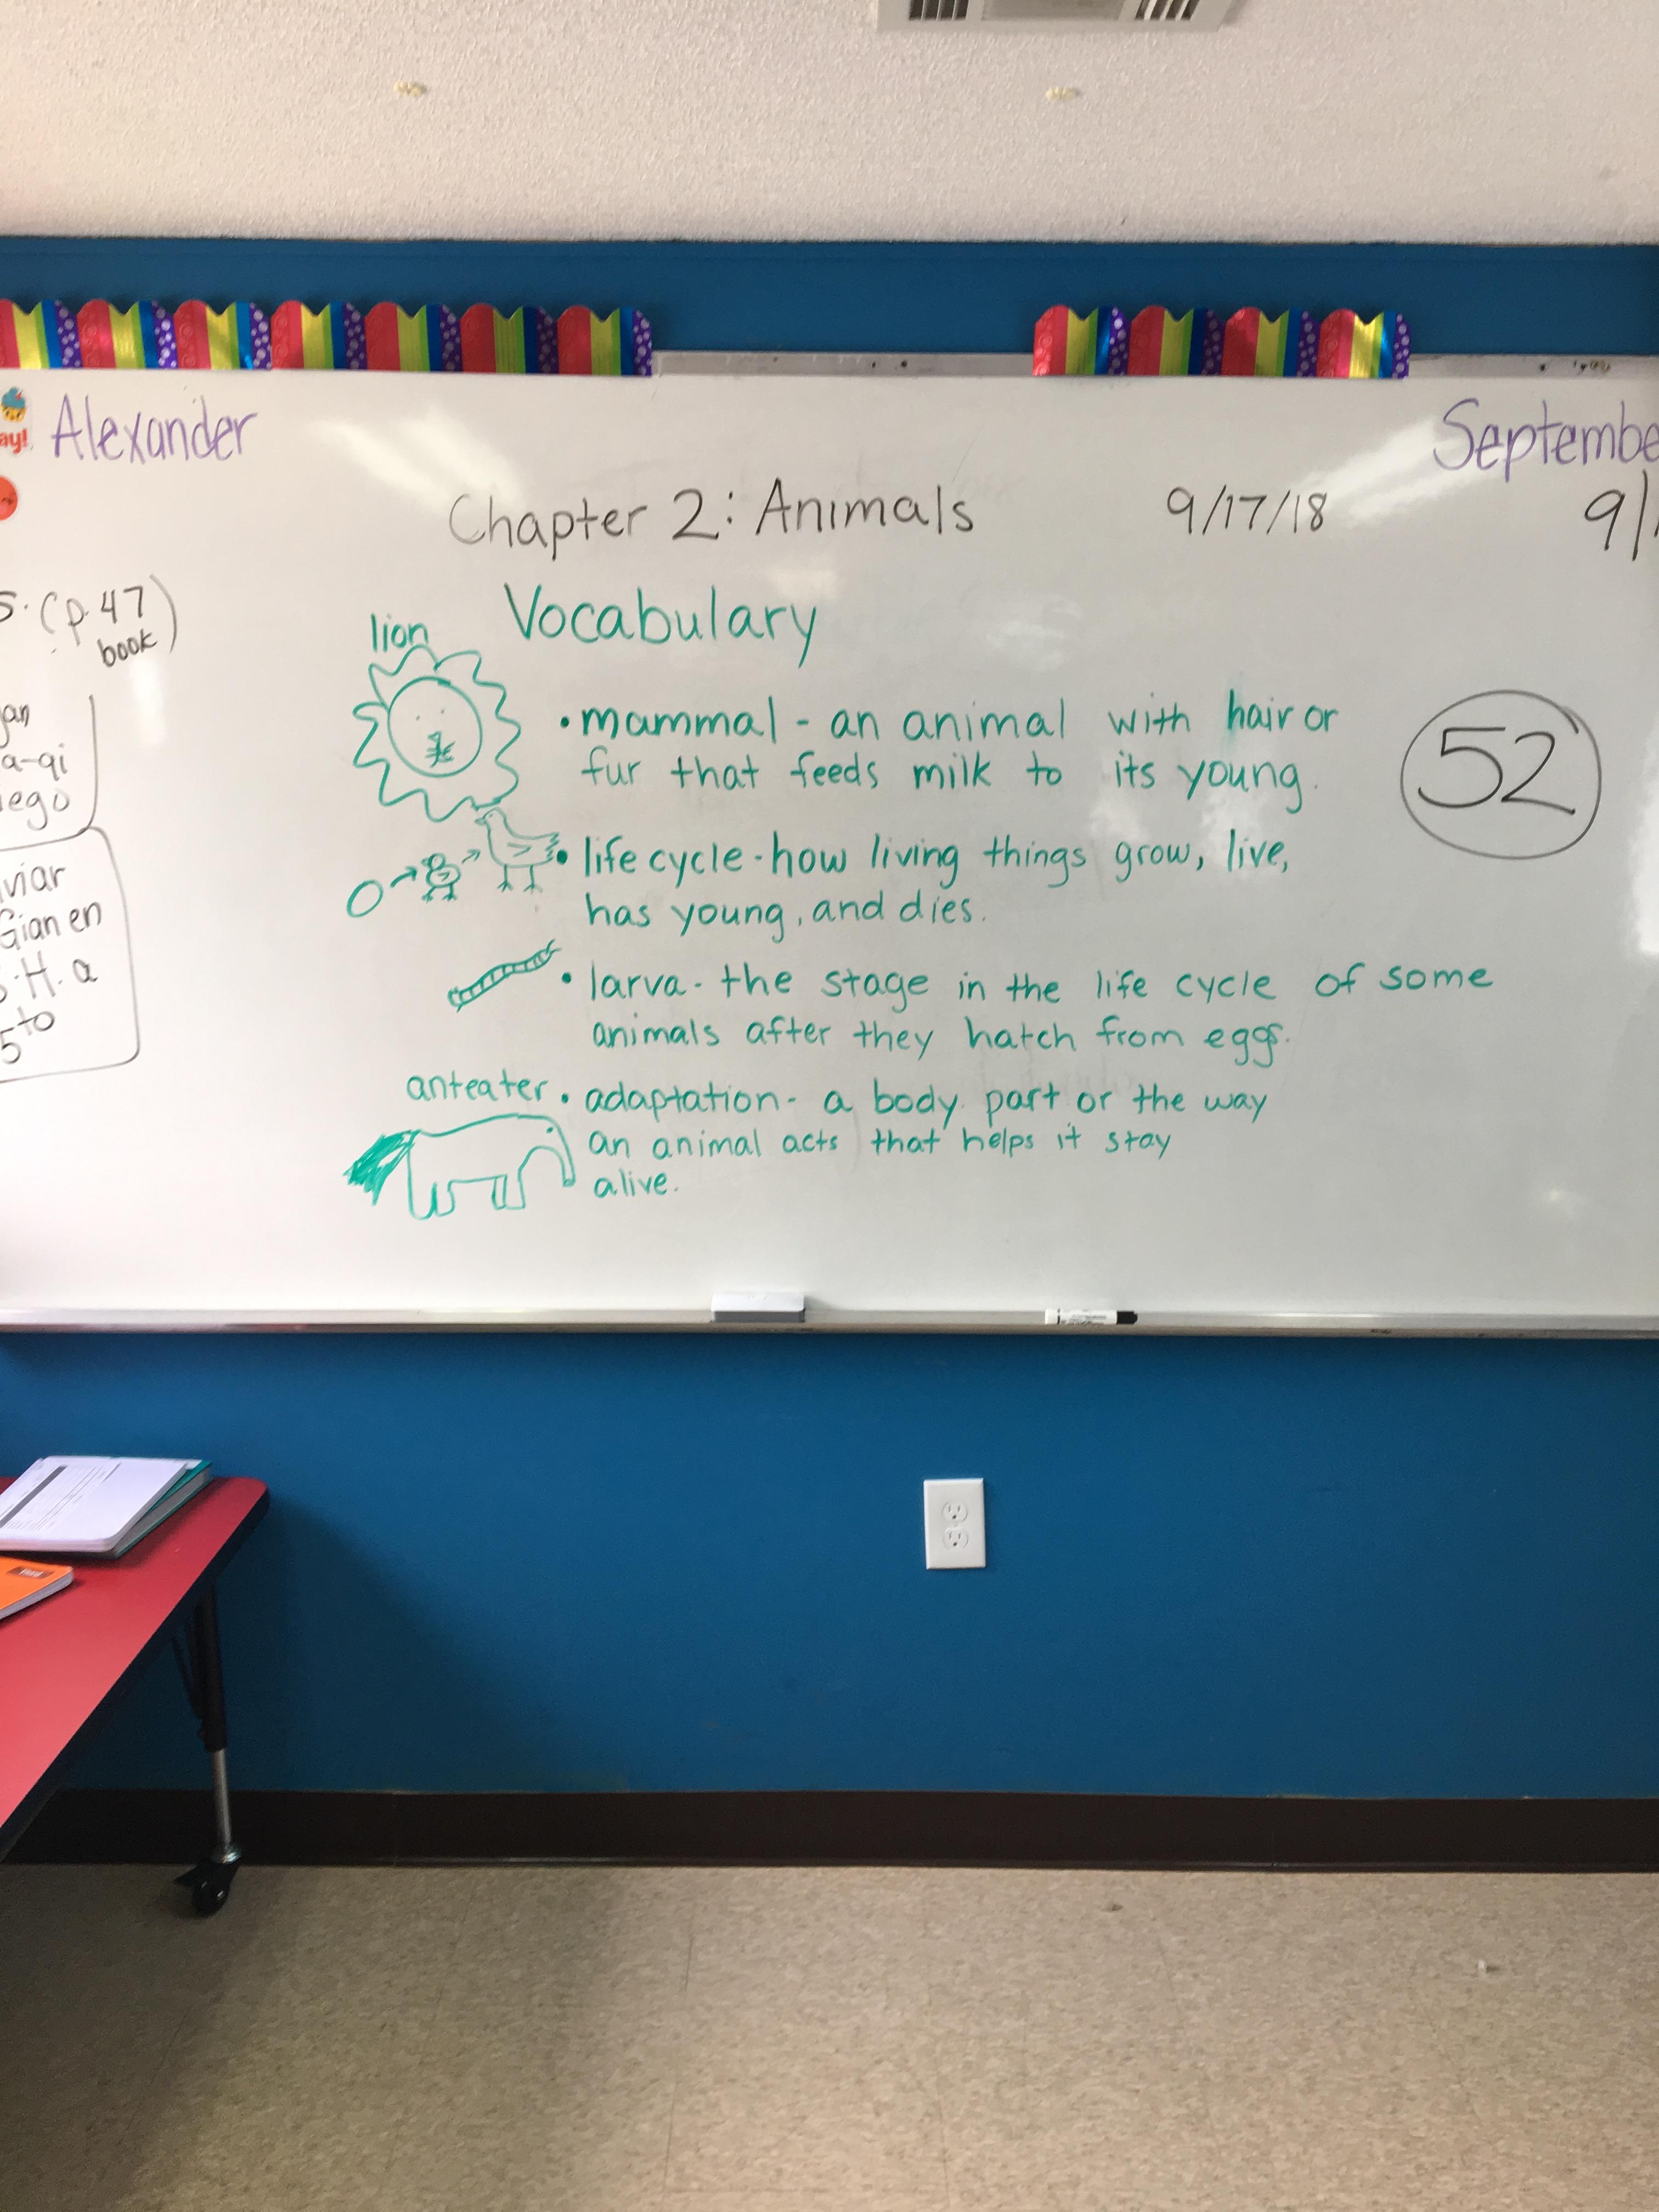 ay!
Alexander
Septembe
Chapter 2: Animals
9/17/18
9/
(p. 47
book)
Vocabulary
lion
• mammal - an animal with hair or
fur that feeds milk to its young.
52
• life cycle - how living things grow, live,
has young, and dies.
• larva - the stage in the life cycle of some
animals after they hatch from eggs.
anteater
• adaptation - a body part or the way
an animal acts that helps it stay
alive.
an
a-qi
ego
viar
Gian en
H. a
5to